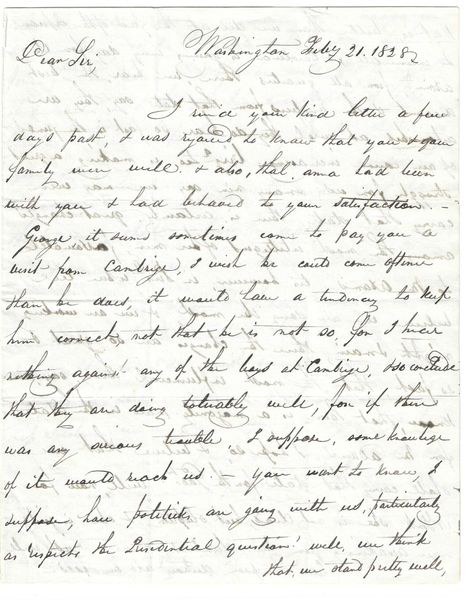 Washington Feby 21. 1828
Dear Sir,
I rec'd your kind letter a few
days past, & was rejoiced to know that you & your
family were well & also, that anna had been
with you & had behaved to your satisfaction —
George it seems sometimes come to pay you a
visit from Cambrige, I wish he could come oftener
than he does, it would have a tendency to keep
him correct, not that he is not so, for I hear
nothing against any of the boys at Cambrige, & so conclude
that they are doing toluably well, for if there
was any serious trouble, I suppose, some knowlege
of it would reach us. — you want to know, I
suppose, how politicks are going with us, particularly
as respects the Presidential question; well, we think
that we stand pretty well,